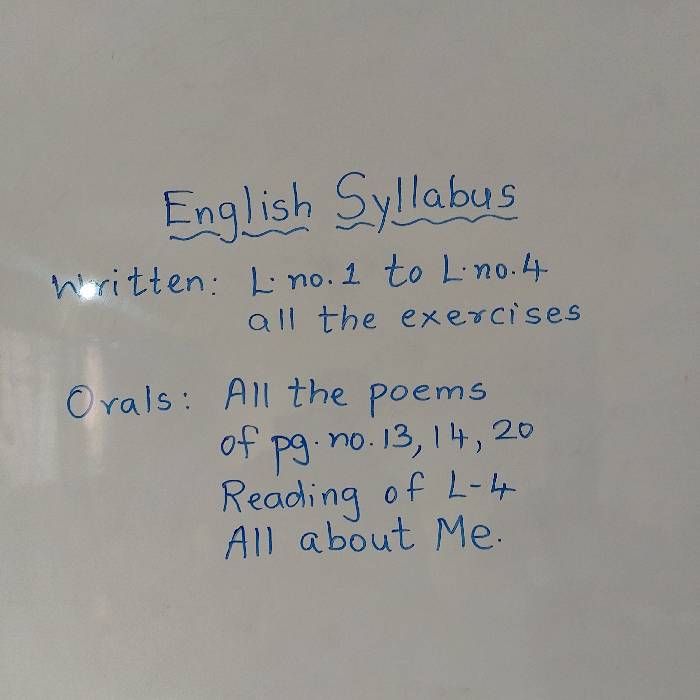 English Syllabus
Written: L. no. 1 to L. no. 4
all the exercises
Orals: All the poems
of pg. no. 13, 14, 20
Reading of L-4
All about Me.